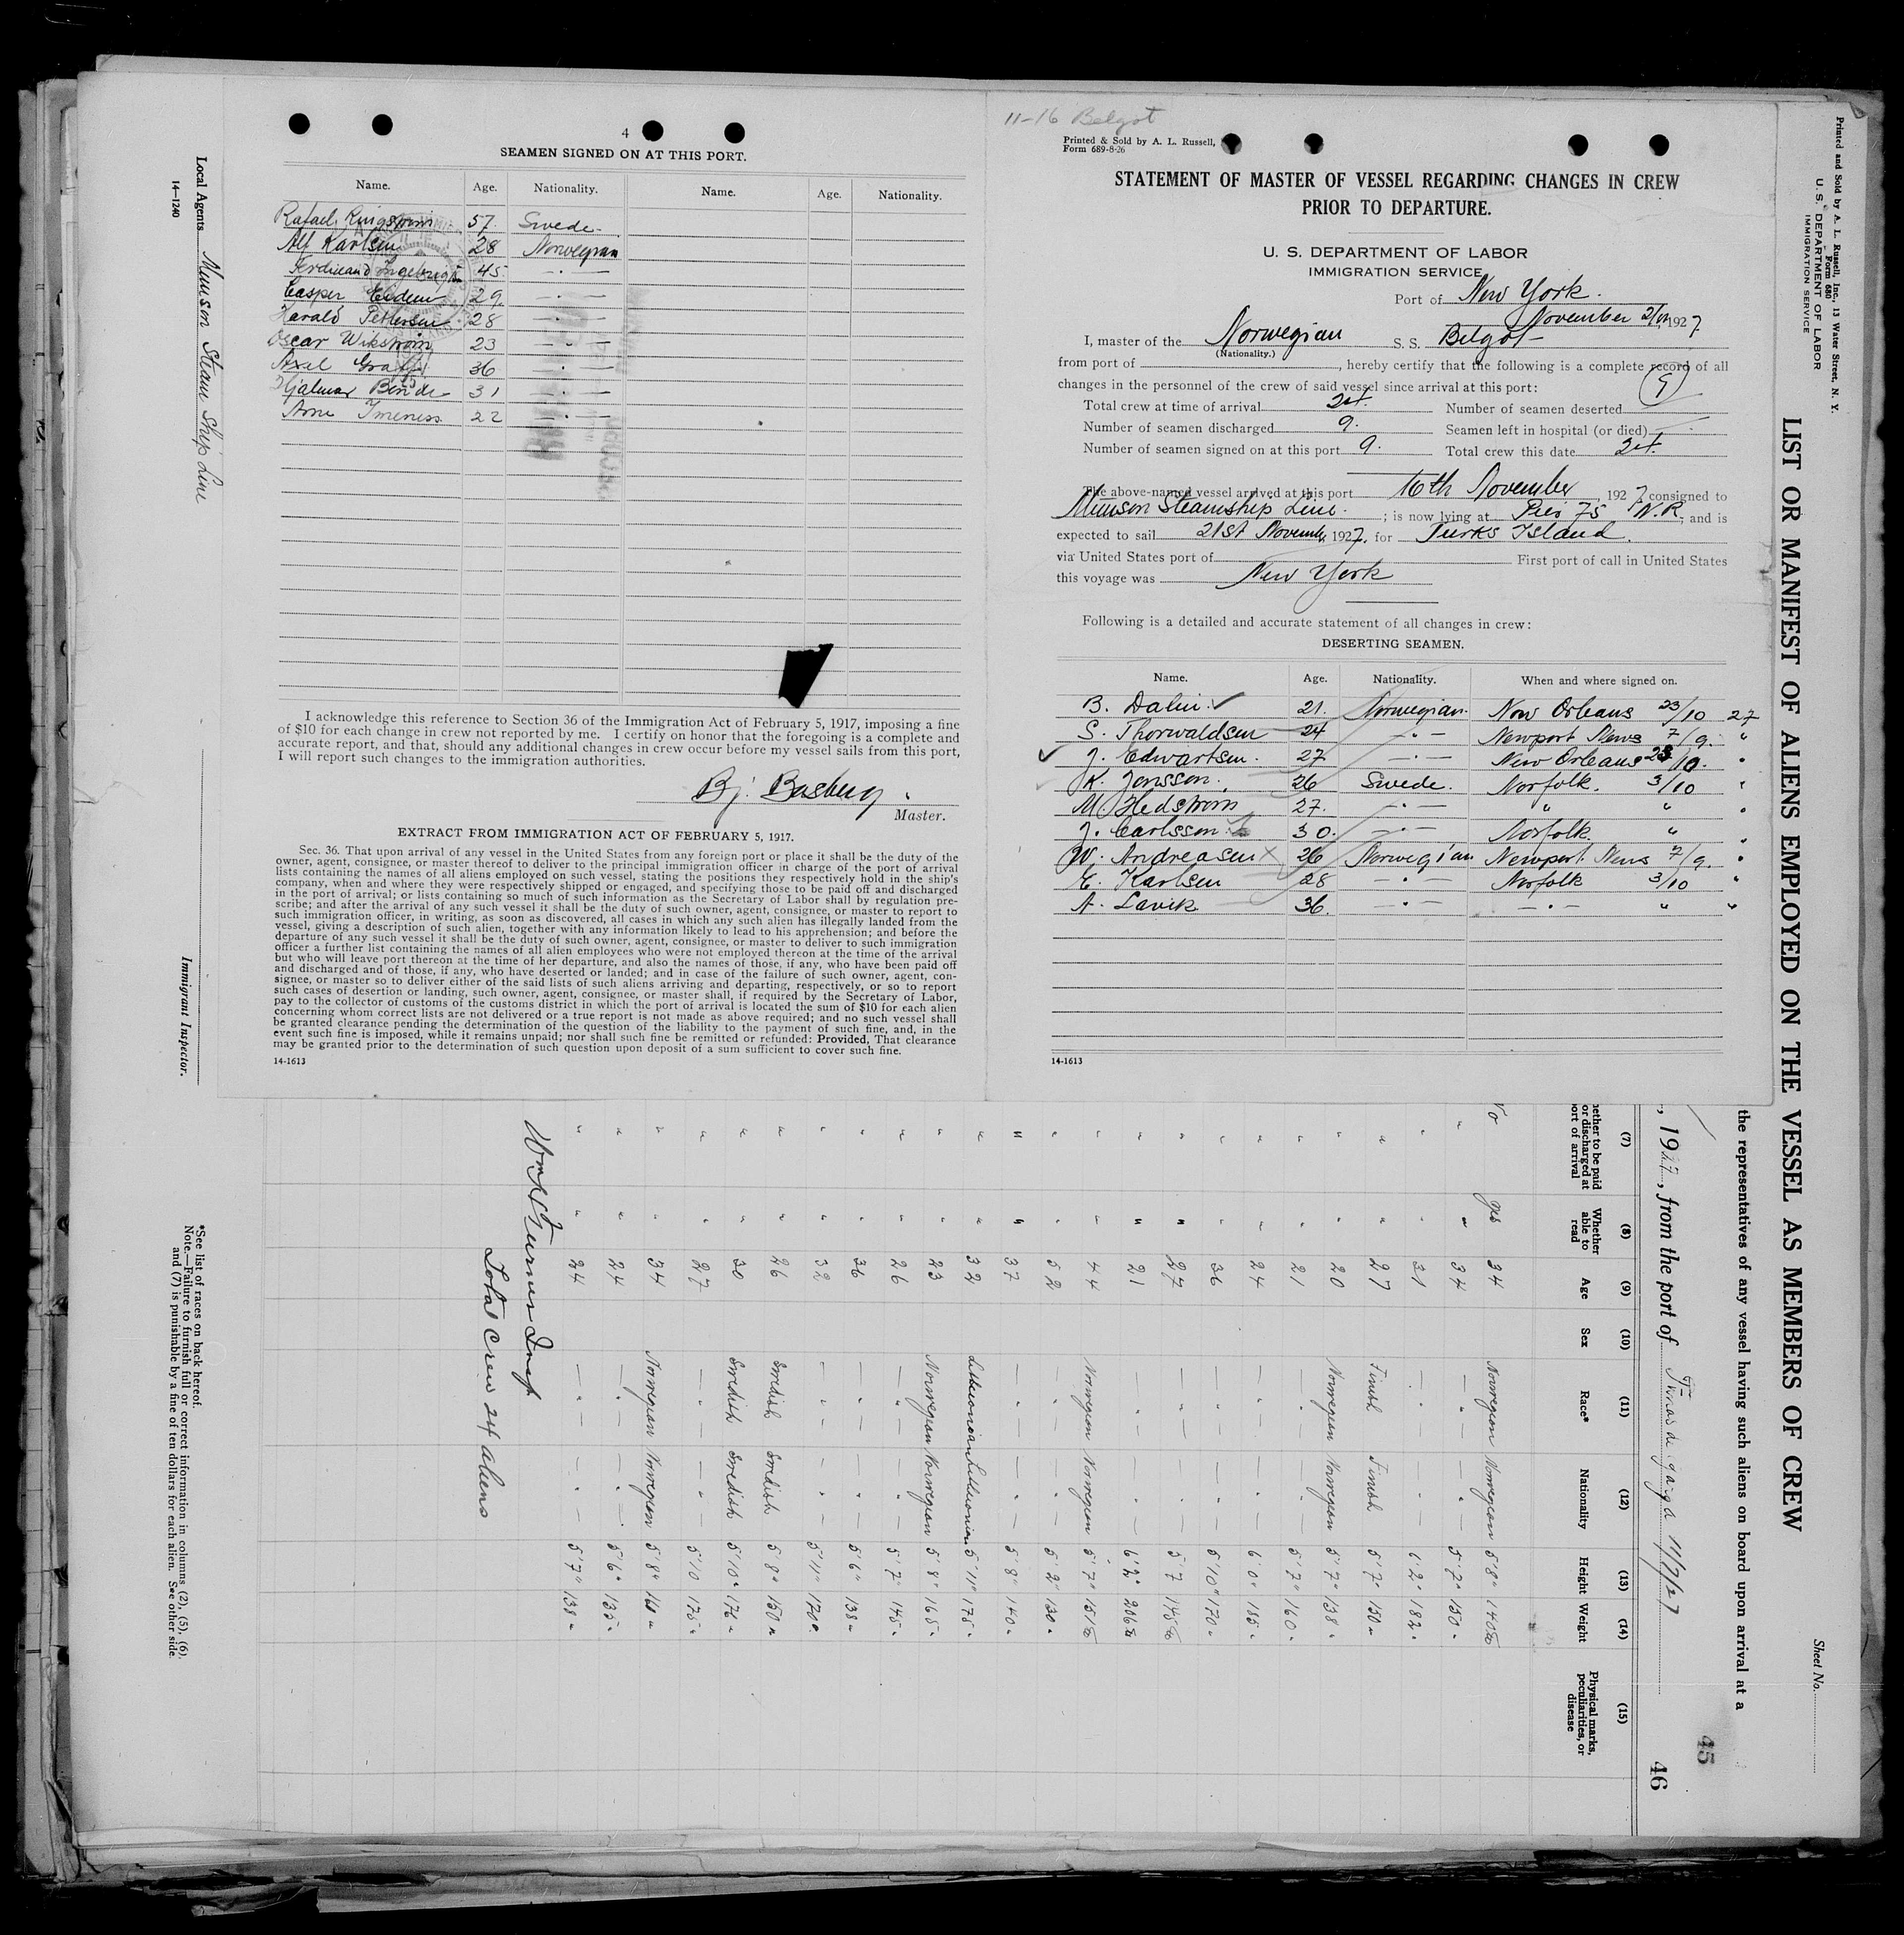 4
SEAMEN SIGNED ON AT THIS PORT.
Name. Age. Nationality. Name. Age. Nationality.
Rafael 57. Swede.
Alf Karlsen 28 Norwegian
Ferdinand 45 — " —
Casper 29. — " —
Harald Pettersen 28 — " —
Oscar Wikstrom 23 — " —
Axel 36 — " —
Hjalmar 31 — " —
Arne 22 — " —
I acknowledge this reference to Section 36 of the Immigration Act of February 5, 1917, imposing a fine
of $10 for each change in crew not reported by me. I certify on honor that the foregoing is a complete and
accurate report, and that, should any additional changes in crew occur before my vessel sails from this port,
I will report such changes to the immigration authorities.
Bj. Basberg.
Master.
EXTRACT FROM IMMIGRATION ACT OF FEBRUARY 5, 1917.
Sec. 36. That upon arrival of any vessel in the United States from any foreign port or place it shall be the duty of the
owner, agent, consignee, or master thereof to deliver to the principal immigration officer in charge of the port of arrival
lists containing the names of all aliens employed on such vessel, stating the positions they respectively hold in the ship's
company, when and where they were respectively shipped or engaged, and specifying those to be paid off and discharged
in the port of arrival; or lists containing so much of such information as the Secretary of Labor shall by regulation pre-
scribe; and after the arrival of any such vessel it shall be the duty of such owner, agent, consignee, or master to report to
such immigration officer, in writing, as soon as discovered, all cases in which any such alien has illegally landed from the
vessel, giving a description of such alien, together with any information likely to lead to his apprehension; and before the
departure of any such vessel it shall be the duty of such owner, agent, consignee, or master to deliver to such immigration
officer a further list containing the names of all alien employees who were not employed thereon at the time of the arrival
but who will leave port thereon at the time of her departure, and also the names of those, if any, who have been paid off
and discharged and of those, if any, who have deserted or landed; and in case of the failure of such owner, agent, con-
signee, or master so to deliver either of the said lists of such aliens arriving and departing, respectively, or so to report
such cases of desertion or landing, such owner, agent, consignee, or master shall, if required by the Secretary of Labor,
pay to the collector of customs of the customs district in which the port of arrival is located the sum of $10 for each alien
concerning whom correct lists are not delivered or a true report is not made as above required; and no such vessel shall
be granted clearance pending the determination of the question of the liability to the payment of such fine, and, in the
event such fine is imposed, while it remains unpaid; nor shall such fine be remitted or refunded: Provided, That clearance
may be granted prior to the determination of such question upon deposit of a sum sufficient to cover such fine.
14-1613
11-16 Belgot
Printed & Sold by A. L. Russell,
Form 689-8-26
STATEMENT OF MASTER OF VESSEL REGARDING CHANGES IN CREW
PRIOR TO DEPARTURE.
U. S. DEPARTMENT OF LABOR
IMMIGRATION SERVICE
Port of New York.
November 21st, 1927.
I, master of the Norwegian S. S. Belgot
(Nationality.)
from port of , hereby certify that the following is a complete record of all
changes in the personnel of the crew of said vessel since arrival at this port:
Total crew at time of arrival 24. Number of seamen deserted 9
Number of seamen discharged 9. Seamen left in hospital (or died)
Number of seamen signed on at this port 9. Total crew this date 24.
The above-named vessel arrived at this port 16th November, 1927, consigned to
Munson Steamship Line. ; is now lying at Pier 75 N.R., and is
expected to sail 21st Novemb. 1927. for Turks Island.
via United States port of First port of call in United States
this voyage was New York
Following is a detailed and accurate statement of all changes in crew:
DESERTING SEAMEN.
Name. Age. Nationality. When and where signed on.
B. Dalin 21. Norwegian. New Orleans 23/10 27
S. Thorwaldsen 24 — " — Newport News 7/9. "
J. Edwartsen. 27 — " — New Orleans 23/10. "
K. Jonsson. 26 Swede. Norfolk. 3/10 "
M. Hedstrom 27. — " — " " "
J. Carlsson. 30. — " — Norfolk. " "
W. Andreasen 26 Norwegian Newport News 7/9. "
E. Karlsen 28 — " — Norfolk 3/10 "
A. Lavik 36. — " — — " — " "
14-1613
Printed and Sold by A. L. Russell, Inc., 13 Water Street, N. Y.
Form 680
U. S. DEPARTMENT OF LABOR
IMMIGRATION SERVICE
Sheet No.
LIST OR MANIFEST OF ALIENS EMPLOYED ON THE VESSEL AS MEMBERS OF CREW
the representatives of any vessel having such aliens on board upon arrival at a
45
, 1927, from the port of 11/7/27
46
(7) (8) (9) (10) (11) (12) (13) (14) (15)
hether to be paid or discharged at port of arrival Whether able to read Age Sex Race* Nationality Height Weight Physical marks, peculiarities, or disease
No yes 34 Norwegian Norwegian 5'8" 140
" " 34 — " — — " — 5'7" 150 "
" " 31 — " — — " — 6'2" 182 "
" " 27 Finish Finish 5'7" 150 "
" " 20 Norwegian Norwegian 5'7" 138 "
" " 21 — " — — " — 5'7" 160 "
" " 24 — " — — " — 6'0" 185 "
" " 36 — " — — " — 5'10" 170 "
" " 27 — " — — " — 5'7 145
" " 21 — " — — " — 6'2" 206
" " 44 Norwegian Norwegian 5'7" 151
" " 52 — " — — " — 5'2" 130 "
" " 37 — " — — " — 5'8" 140 "
" " 32 5'11" 175 "
" " 23 Norwegian Norwegian 5'8" 165 "
" " 26 — " — — " — 5'7" 145 "
" " 36 — " — — " — 5'6" 138 "
" " 32 — " — — " — 5'11" 170 "
" " 26 Swedish Swedish 5'8" 150 "
" " 30 Swedish Swedish 5'10" 176 "
" " 27 — " — — " — 5'10 175 "
" " 34 Norwegian Norwegian 5'8" 160 "
" " 24 — " — — " — 5'6" 135 "
" " 24 — " — — " — 5'7" 138 "
Turner Insp
Total Crew 24 aliens
*See list of races on back hereof.
Note.—Failure to furnish full or correct information in columns (2), (5), (6),
and (7) is punishable by a fine of ten dollars for each alien. See other side.
Local Agents Munson Steam Ship Line
Immigrant Inspector.
14—1240